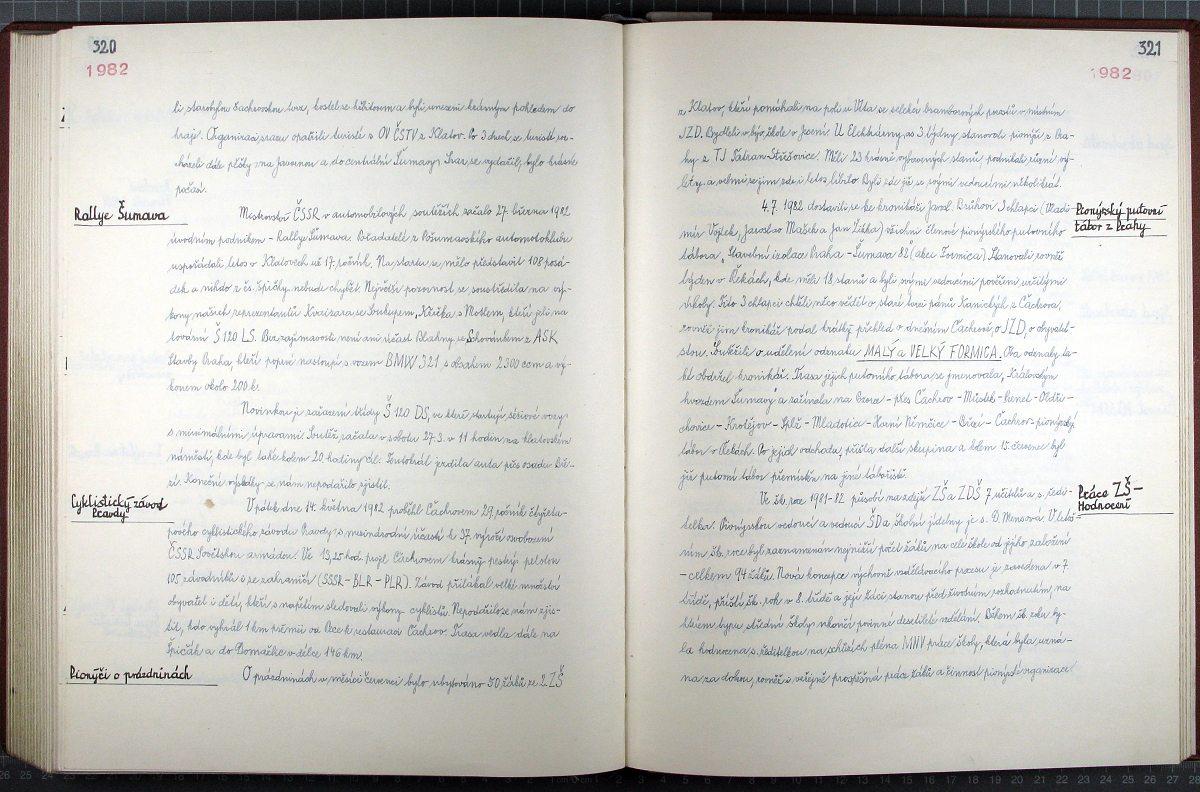 320
1982
li, starobylou čachrovskou tvrz, kostel se hřbitovem a byli uneseni krásným pohledem do
kraje. Organizaci srazu opatřili turisté s OV ČSTV z Klatov. Po 3 dnech se turisté roz-
cházeli dále pěšky na Javornou a do centrální Šumavy. Sraz se vydařil, bylo krásné
počasí.
Rallye Šumava
Mistrovství ČSSR v automobilových soutěžích začalo 27. března 1982
úvodním podnikem - Rallye Šumava. Pořadatelé z Pošumavského automotoklubu
uspořádali letos v Klatovech už 17. ročník. Na startu se mělo představit 108 posá-
dek a nikdo z čs. špičky nebude chybět. Největší pozornost se soustředila na vý-
kony našich reprezentantů Kvaizara se Soukupem, Křečka s Motlem, kteří jeli na
továrních Š 120 LS. Bez zajímavosti není ani účast Blahny se Schovánkem z ASK
Stavby Praha, kteří poprvé nastoupí s vozem BMW 321 s obsahem 2300 ccm a vý-
konem okolo 200 k.
Novinkou je zařazení třídy Š 120 DS, ve které startují sériové vozy
s minimálními úpravami. Soutěž začala v sobotu 27.3. v 11 hodin na klatovském
náměstí, kde byl také kolem 20 hodiny cíl. Tentokrát jezdila auta přes osadu Bře-
zí. Konečné výsledky se nám nepodařilo zjistit.
Cyklistický závod
Pravdy
V pátek dne 14. května 1982 proběhl Čachrovem 29. ročník čtyřeta-
pového cyklistického závodu Pravdy s mezinárodní účastí k 37. výročí osvobození
ČSSR Sovětskou armádou. Ve 13,25 hod. projel Čachrovem krásný pestrý peloton
105 závodníků i ze zahraničí (SSSR - BLR - PLR). Závod přilákal velké množství
obyvatel i dětí, kteří s napětím sledovali výkony cyklistů. Nepodařilo se nám zjis-
tit, kdo vyhrál 1 km prémii od Pece k restauraci Čachrov. Trasa vedla dále na
Špičák a do Domažlic v délce 146 km.
Pionýři o prázdninách
O prázdninách v měsíci červenci bylo ubytováno 50 žáků ze 2. ZŠ
321
1982
z Klatov, kteří pomáhali na poli u Víta se selekcí bramborových porostů v místním
JZD. Bydleli v býv. škole v Javorné. U Elektrárny, as 3 týdny, stanovali pionýři z Pra-
hy z TJ Tatran - Střešovice. Měli 23 krásně vybavených stanů, podnikali různé vý-
lety a velmi se jim zde i letos líbilo. Byli zde již se svými vedoucími několikrát.
Pionýrský putovní
tábor z Prahy
4.7. 1982 dostavili se ke kronikáři Jarosl. Brůhovi 3 chlapci (Vladi-
mír Vojtek, Jaroslav Mašek a Jan Žižka) všichni členové pionýrského putovního
tábora „Stavební izolace Praha - Šumava 82 (akce Formica). Stanovali rovněž
týden v Řekách, kde měli 18 stanů a byli svými vedoucími pověřeni určitými
úkoly. Tito 3 chlapci chtěli něco vědět o staré tvrzi pánů Kanických z Čachrova,
rovněž jim kronikář podal krátký přehled o dnešním Čachrově, o JZD, o obyvatel-
stvu. Soutěžili o udělení odznaku MALÝ a VELKÝ FORMICA. Oba odznaky ta-
ké obdržel kronikář. Trasa jejich putovního tábora se jmenovala „Královským
hvozdem Šumavy" a začínala na - přes Čachrov - Můstek - - Oldři-
chovice - Kratějov - - Mladotice - Hané Němčice - - Čachrov - pionýrský
tábor v Řekách. Po jejich odchodu, přišla další skupina a kolem 15. července byl
již putovní tábor přemístěn na jiné tábořiště.
Práce ZŠ -
Hodnocení
Ve šk. roce 1981-82 působí na zdejší ZŠ a ZDŠ 7 učitelů a s. ředi-
telka. Pionýrskou vedoucí a vedoucí ŠD a školní jídelny je s. D. Mensová. V letoš-
ním šk. roce byl zaznamenán nejnižší počet žáků na celé škole od jejího založení
- celkem 94 žáků. Nová koncepce výchovně vzdělávacího procesu je zavedena v 7.
třídě, příští šk. rok v 8. třídě a její žáci stanou před závodním rozhodnutím, na
kterém typu střední školy ukončí povinné desetileté vzdělání. Během šk. roku by-
la hodnocena s. ředitelkou na schůzích pléna MNV práce školy, která byla uzná-
na za dobrou, rovněž i veřejně prospěšná práce žáků a činnost pionýrské organizace